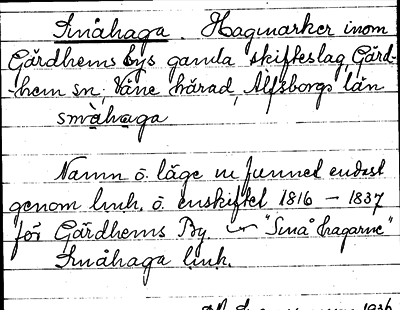 Småhaga. Hagmarker inom
Gärdhems bys gamla skifteslag, Gärd-
-hem sn, Väne härad, Älfsborgs län
småhaga
Namn o. läge nu funnet endast
genom lmh. o. enskiftet 1816 – 1837
för Gärdhems By. "Små hagarne"
Småhaga lmh.
1936